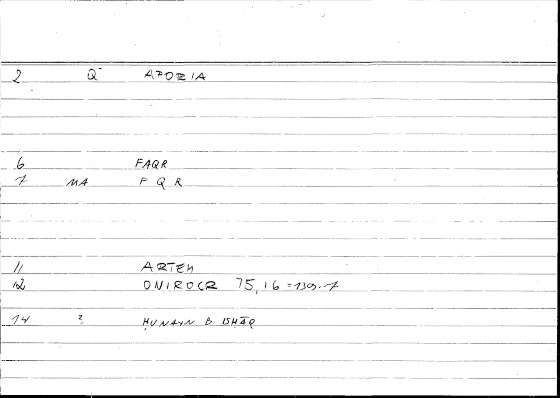 2 Q APORIA
6 FAQR
7 MA F Q R
11 ARTEM
12 ONIROCR 75,16 = 139.7
14 ? ḤUNAYN B ISḤĀQ